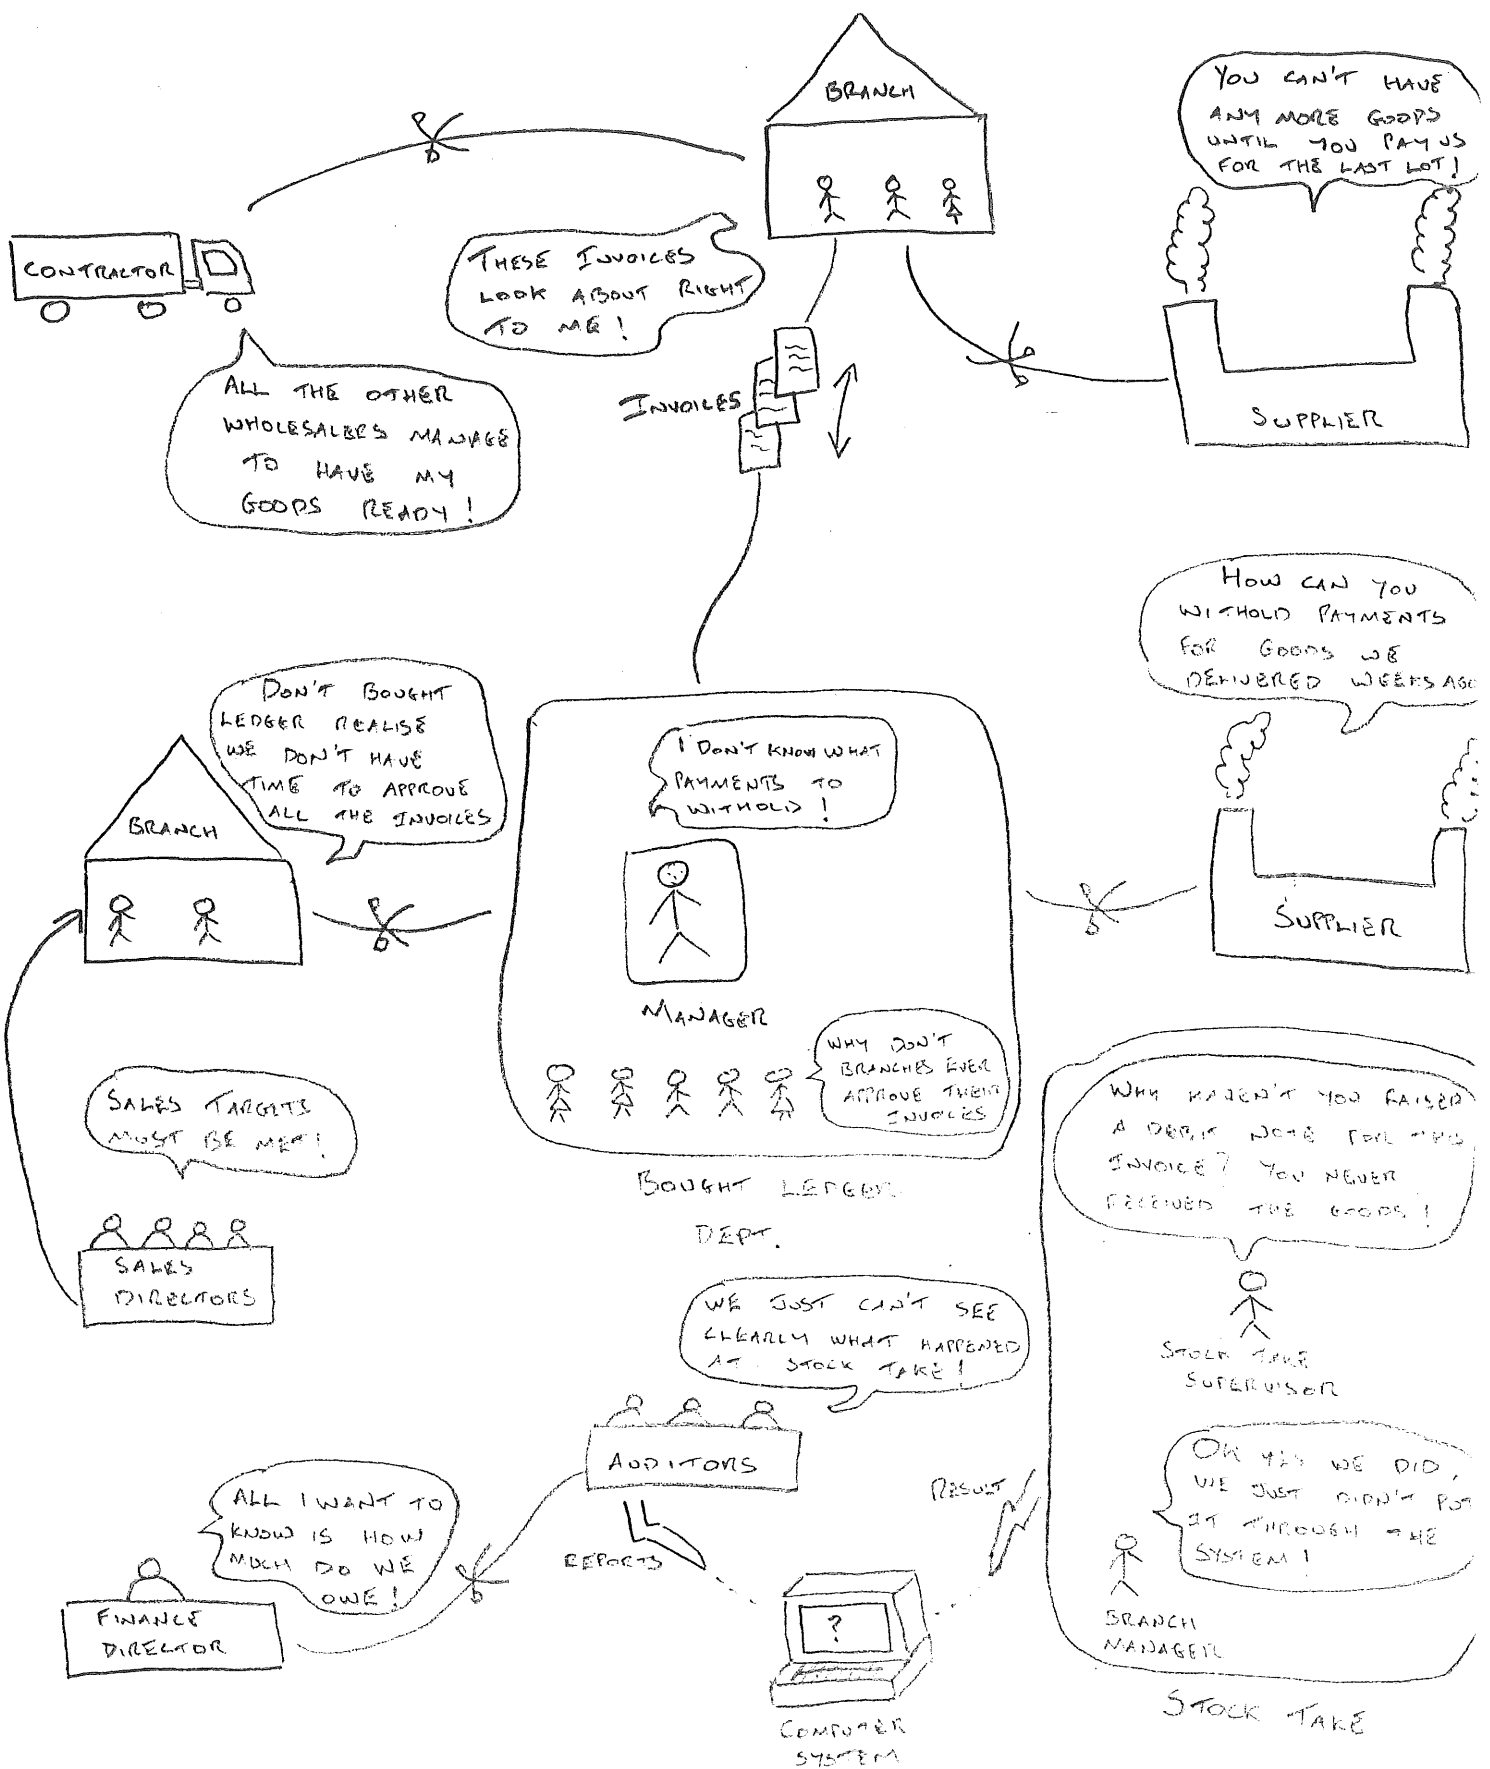 BRANCH
YOU CAN'T HAVE
ANY MORE GOODS
UNTIL YOU PAY US
FOR THE LAST LOT!
CONTRACTOR
THESE INVOICES
LOOK ABOUT RIGHT
TO ME!
ALL THE OTHER
WHOLESALERS MANAGE
TO HAVE MY
GOODS READY!
INVOICES
SUPPLIER
HOW CAN YOU
WITHOLD PAYMENTS
FOR GOODS WE
DELIVERED WEEKS AGO
DON'T BOUGHT
LEDGER REALISE
WE DON'T HAVE
TIME TO APPROVE
ALL THE INVOICES
BRANCH
I DON'T KNOW WHAT
PAYMENTS TO
WITHOLD!
MANAGER
SUPPLIER
WHY DON'T
BRANCHES EVER
APPROVE THEIR
INVOICES
BOUGHT LEDGER
DEPT.
SALES TARGETS
MUST BE MET!
SALES
DIRECTORS
WHY HAVEN'T YOU RAISED
A DEBIT NOTE FOR THIS
INVOICE? YOU NEVER
RECEIVED THE GOODS!
STOCK TAKE
SUPERVISOR
WE JUST CAN'T SEE
CLEARLY WHAT HAPPENED
AT STOCK TAKE!
AUDITORS
OK YES WE DID,
WE JUST DIDN'T PUT
IT THROUGH THE
SYSTEM!
BRANCH
MANAGER
STOCK TAKE
RESULT
REPORTS
ALL I WANT TO
KNOW IS HOW
MUCH DO WE
OWE!
FINANCE
DIRECTOR
?
COMPUTER
SYSTEM